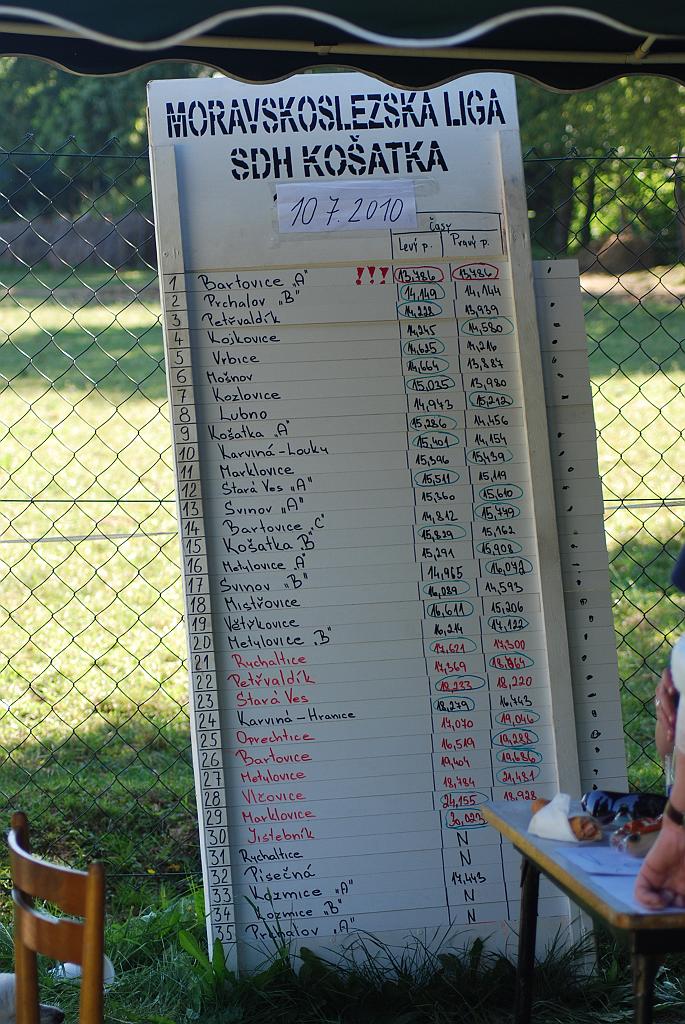 MORAVSKOSLEZSKA LIGA
SDH KOŠATKA
10 7. 2010
Časy
Levý p. Pravý p.
1 Bartovice „A" !!! 13,786 13,786
2 Prchalov „B" 14,149 14,144
3 Petřvaldík 14,228 13,939
4 Kojkovice 14,245 14,580
5 Vrbice 14,625 14,216
6 Mošnov 14,664 13,887
7 Kozlovice 15,035 13,980
8 Lubno 14,943 15,212
9 Košatka „A" 15,286 14,456
10 Karviná-Louky 15,401 14,154
11 Marklovice 15,396 15,439
12 Stará Ves „A" 15,511 15,119
13 Svinov „A" 15,360 15,610
14 Bartovice „C" 14,812 15,779
15 Košatka „B" 15,829 15,162
16 Metylovice „A" 15,291 15,908
17 Svinov „B" 14,965 16,072
18 Mistřovice 16,089 14,593
19 Větřkovice 16,611 15,206
20 Metylovice „B" 16,214 17,122
21 Rychaltice 17,621 17,300
22 Petřvaldík 17,369 18,064
23 Stará Ves 18,233 18,220
24 Karviná-Hranice 18,279 16,743
25 Oprechtice 17,070 19,046
26 Bartovice 16,519 19,288
27 Metylovice 19,404 19,686
28 Vlčovice 18,784 21,481
29 Marklovice 24,155 18,928
30 Jistebník 30,023
31 Rychaltice N
32 Písečná N
33 Kozmice „A" 17,443
34 Kozmice „B" N
35 Prchalov „A" N